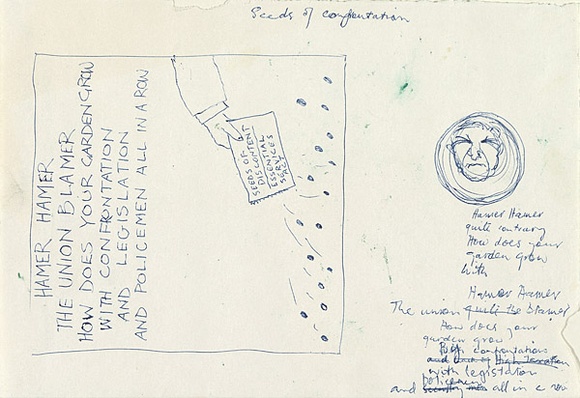 Seeds of confrontation
HAMER HAMER
THE UNION BLAMER
HOW DOES YOUR GARDEN GROW
WITH CONFRONTATION
AND LEGISLATION
AND POLICEMEN ALL IN A ROW
SEEDS OF
DISCONTENT
ESSENTIAL
SERVICES
ACT
Hamer Hamer
quite contrary
How does your
garden grow
with
Hamer Hamer
The union quite the blamer
How does your
garden grow
With confrontations
and high taxation
with legislation
policemen
and security men all in a row